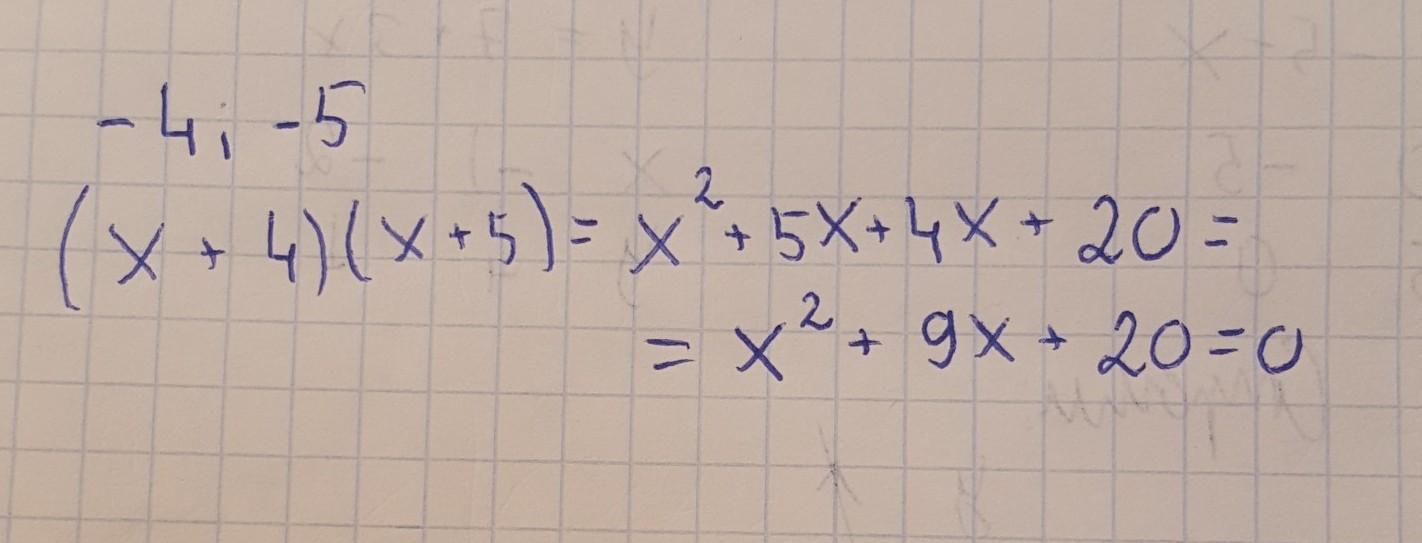 -4; -5
(x + 4)(x+5)= x²+5x+4x + 20 =
= x² + 9x + 20=0